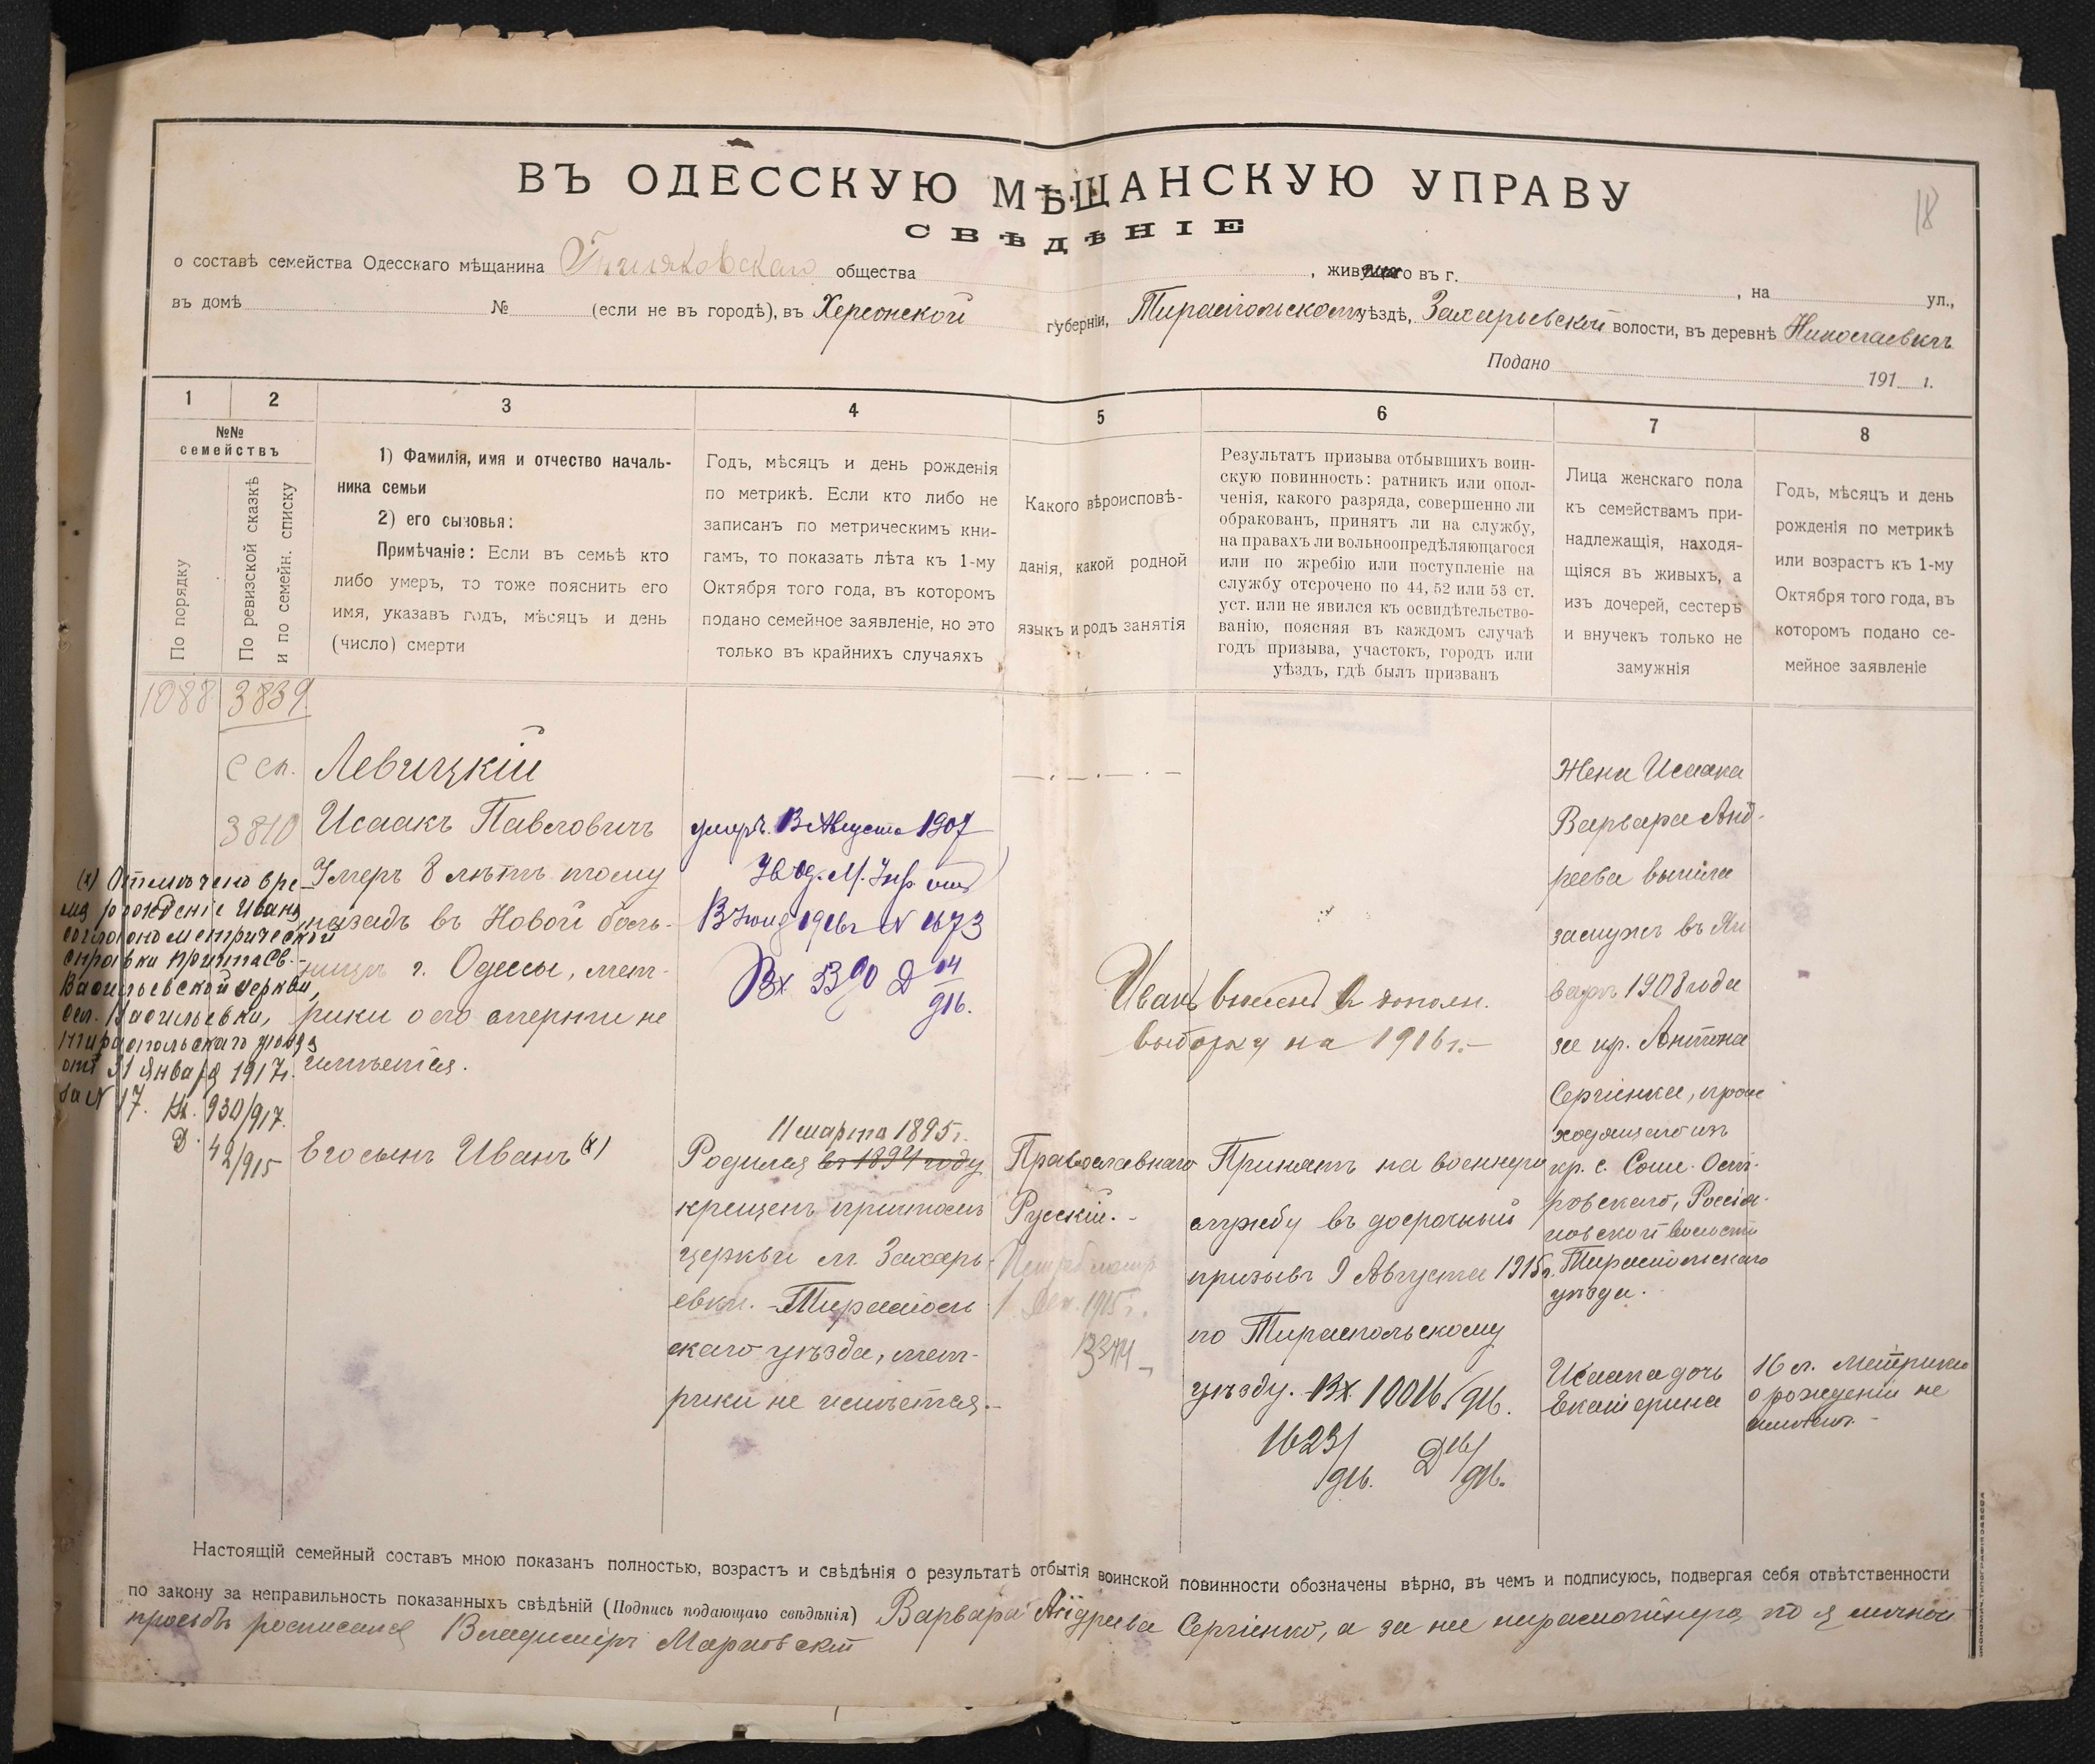 18
ВЪ ОДЕССКУЮ МѢЩАНСКУЮ УПРАВУ
СВѢДѢНІЕ
о составѣ семейства Одесскаго мѣщанина общества , живущаго въ г. , на ул.,
въ домѣ № (если не въ городѣ), въ Херсонской губерніи, Тираспольскомъ уѣздѣ, Захарьевской волости, въ деревнѣ Николаевкѣ
Подано 191 г.
1 2 3 4 5 6 7 8
№№
семействъ
По порядку
По ревизской сказкѣ
и по семейн. списку
1) Фамилія, имя и отчество началь-
ника семьи
2) его сыновья:
Примѣчаніе: Если въ семьѣ кто
либо умеръ, то тоже пояснить его
имя, указавъ годъ, мѣсяцъ и день
(число) смерти
Годъ, мѣсяцъ и день рожденія
по метрикѣ. Если кто либо не
записанъ по метрическимъ кни-
гамъ, то показать лѣта къ 1-му
Октября того года, въ которомъ
подано семейное заявленіе, но это
только въ крайнихъ случаяхъ
Какого вѣроисповѣ-
данія, какой родной
языкъ и родъ занятія
Результатъ призыва отбывшихъ воин-
скую повинность: ратникъ или опол-
ченія, какого разряда, совершенно ли
обракованъ, принятъ ли на службу,
на правахъ ли вольноопредѣляющагося
или по жребію или поступленіе на
службу отсрочено по 44, 52 или 53 ст.
уст. или не явился къ освидѣтельство-
ванію, поясняя въ каждомъ случаѣ
годъ призыва, участокъ, городъ или
уѣздъ, гдѣ былъ призванъ
Лица женскаго пола
къ семействамъ при-
надлежащія, находя-
щіяся въ живыхъ, а
изъ дочерей, сестеръ
и внучекъ только не
замужнія
Годъ, мѣсяцъ и день
рожденія по метрикѣ
или возрастъ къ 1-му
Октября того года, въ
которомъ подано се-
мейное заявленіе
1088 3839
с сп.
3810
Левицкій
Исаакъ Павловичъ
Умеръ 8 лѣтъ тому
назадъ въ Новой боль-
ницѣ г. Одессы, мет-
рики о его смерти не
имѣется.
Его сынъ Иванъ (х)
(х) Отмѣчено вре-
мя рожденіе Ивана
согласно метрической
справки причта Св.-
Васильевской церкви,
сел. Васильевки,
Тираспольскаго уѣзда
отъ 31 января 1917 г.
за № 17. Вх. 930/917.
Д. 42/915
умеръ 13 Августа 1907
1916 г. № 1673
Вх 3390 Д 04/916.
11 марта 1895 г.
Родился въ 1894 году
крещенъ причтомъ
церкви м. Захарь-
евки. Тирасполь
скаго уѣзда, мет-
рики не имѣется.-
Православнаго
Русскій.-
1915 г.
Иванъ внесенъ въ дополн.
выборку на 1916 г.-
Принятъ на военную
службу въ досрочный
призывъ 9 Августа 1915 г.
по Тираспольскому
уѣзду. Вх 10016/916.
1623/916. Д 16/916.
Жена Исаака
Варвара Анд-
реева вышла
замужъ въ Ян
варѣ 1908 года
за кр. Антона
Сергіенка, проис
ходящаго изъ
кр. с. Ост-
ровскаго, Россія-
новской волости
Тираспольскаго
уѣзда.
Исаака дочь
Екатерина
16 л. Метрики
о рожденіи не
имѣетъ.-
Настоящій семейный составъ мною показанъ полностью, возрастъ и свѣдѣнія о результатѣ отбытія воинской повинности обозначены вѣрно, въ чемъ и подписуюсь, подвергая себя отвѣтственности
по закону за неправильность показанныхъ свѣдѣній (Подпись подающаго свѣдѣнія) Варвара Андреева Сергіенко, а за нее неграмотную по ея личной
просьбѣ росписался Владиміръ Марковскій